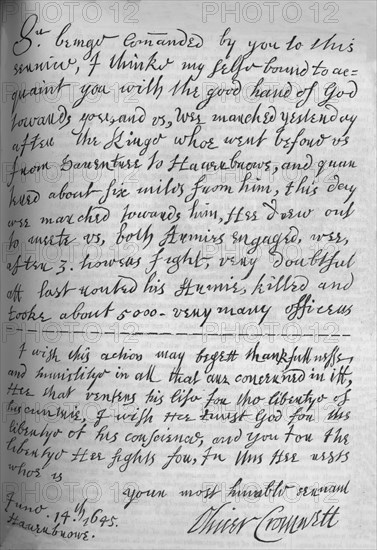 Sr beinge comanded by you to this
service, I thinke my selfe bound to ac-
quaint you with the good hand of God
towards you, and vs, wee marched yesterday
after the Kinge whoe went before vs
from Daventree to Haverbrowe, and quar
tered about six miles from him, this day
wee marched towards him, Hee drew out
to meete vs, both Armies engaged, wee,
after 3. howers fight, very doubtful
att last routed his Armie, killed and
tooke about 5000- very many officers
I wish this action may begett thankfullnesse,
and humilitye in all that are concerned in itt,
Hee that venters his life for the libertye of
his countrie, I wish Hee trust God for the
libertye of his conscience, and you for the
libertye Hee fights for, In this Hee rests
whoe is
your most humble servant
June. 14.th 1645.
Haverbrowe.
Oliver Cromwell